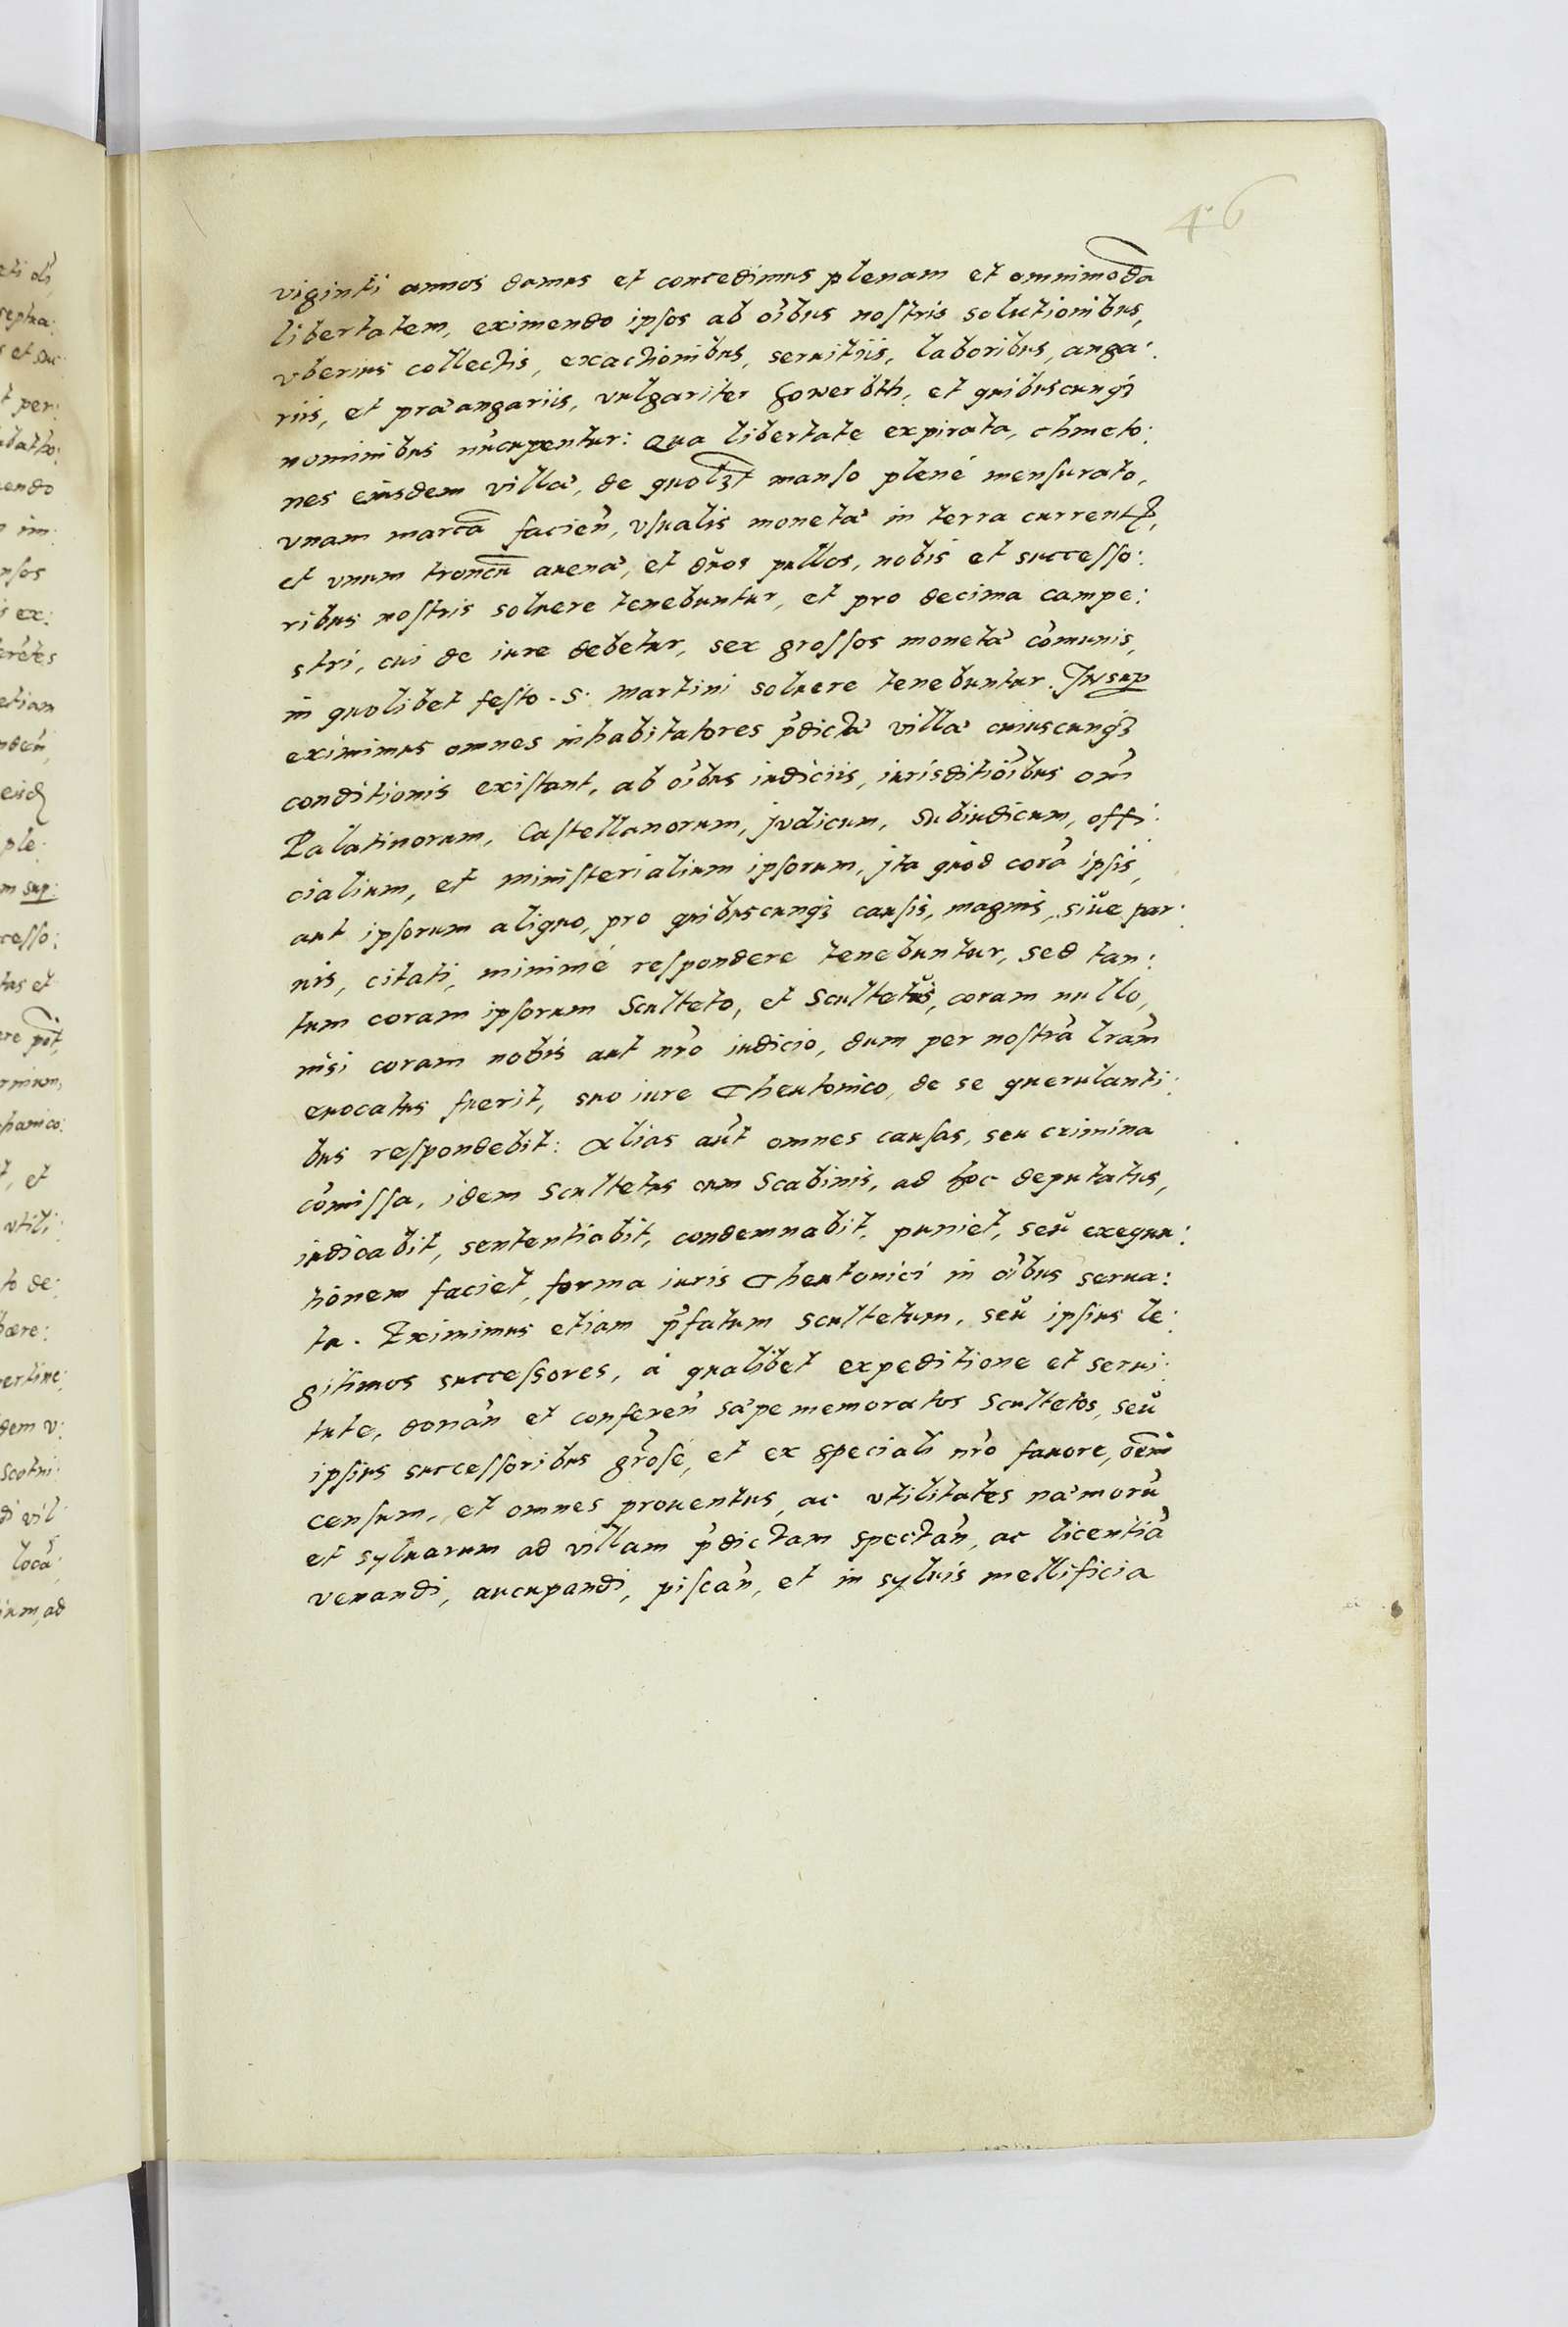 46
viginti annos damus et concedimus plenam et omnimodā
libertatem, eximendo ipsos ab oībus nostris solutionibus,
vberius collectis, exactionibus, seruitiis, laboribus, anga:
riis, et præangariis, vulgariter howerbth, et quibuscunq₃
nominibus nūcupentur: Qua libertate expirata, chmeto:
nes eiusdem villæ, de quol₃t manso plené mensurato,
vnam marcā facień, vsualis monetæ in terra current̃,
et vnum troncū auenæ, et duos pullos, nobis et successo:
ribus nostris soluere tenebuntur, et pro decima campe:
stri, cui de iure debetur, sex grossos monetæ cōmunis,
in quolibet festo S. Martini soluere tenebuntur. Insup
eximimus omnes inhabitatores p̄dictæ villæ cuiuscunq₃
conditionis existant, ab oībus iudiciis, iurisditiōibus om̄
Palatinorum, Castellanorum, judicum, Subiudicum, offi:
cialium, et ministerialium ipsorum, jta quòd corā ipsis,
aut ipsorum aliquo, pro quibuscunq₃ causis, magnis, siue par:
uis, citati, minimè respondere tenebuntur, sed tan:
tum coram ipsorum Sculteto, et Scultetus, coram nullo,
nisi coram nobis aut nr̄o iudicio, dum per nostrā lrām
euocatus fuerit, suo iure Theutonico, de se querulanti:
bus respondebit: Alias aūt omnes causas, seu crimina
cōmissa, idem Scultetus cum Scabinis, ad hoc deputatus,
iudicabit, sententiabit, condemnabit, puniet, seu exequu:
tionem faciet, forma iuris Theutonici in oībus serua:
ta. Eximimus etiam p̄fatum Scultetum, seu ipsius le:
gitimos successores, à qualibet expeditione et serui:
tute, donań et confereń sæpe memoratos Scultetos, seu
ipsius successoribus gr̄osé, et ex speciali nr̄o fauore, oēm
censum, et omnes prouentus, ac vtilitates næmorū
et syluarum ad villam p̄dictam spectań, ac licentiā
venandi, aucupandi, piscań, et in syluis mellificia